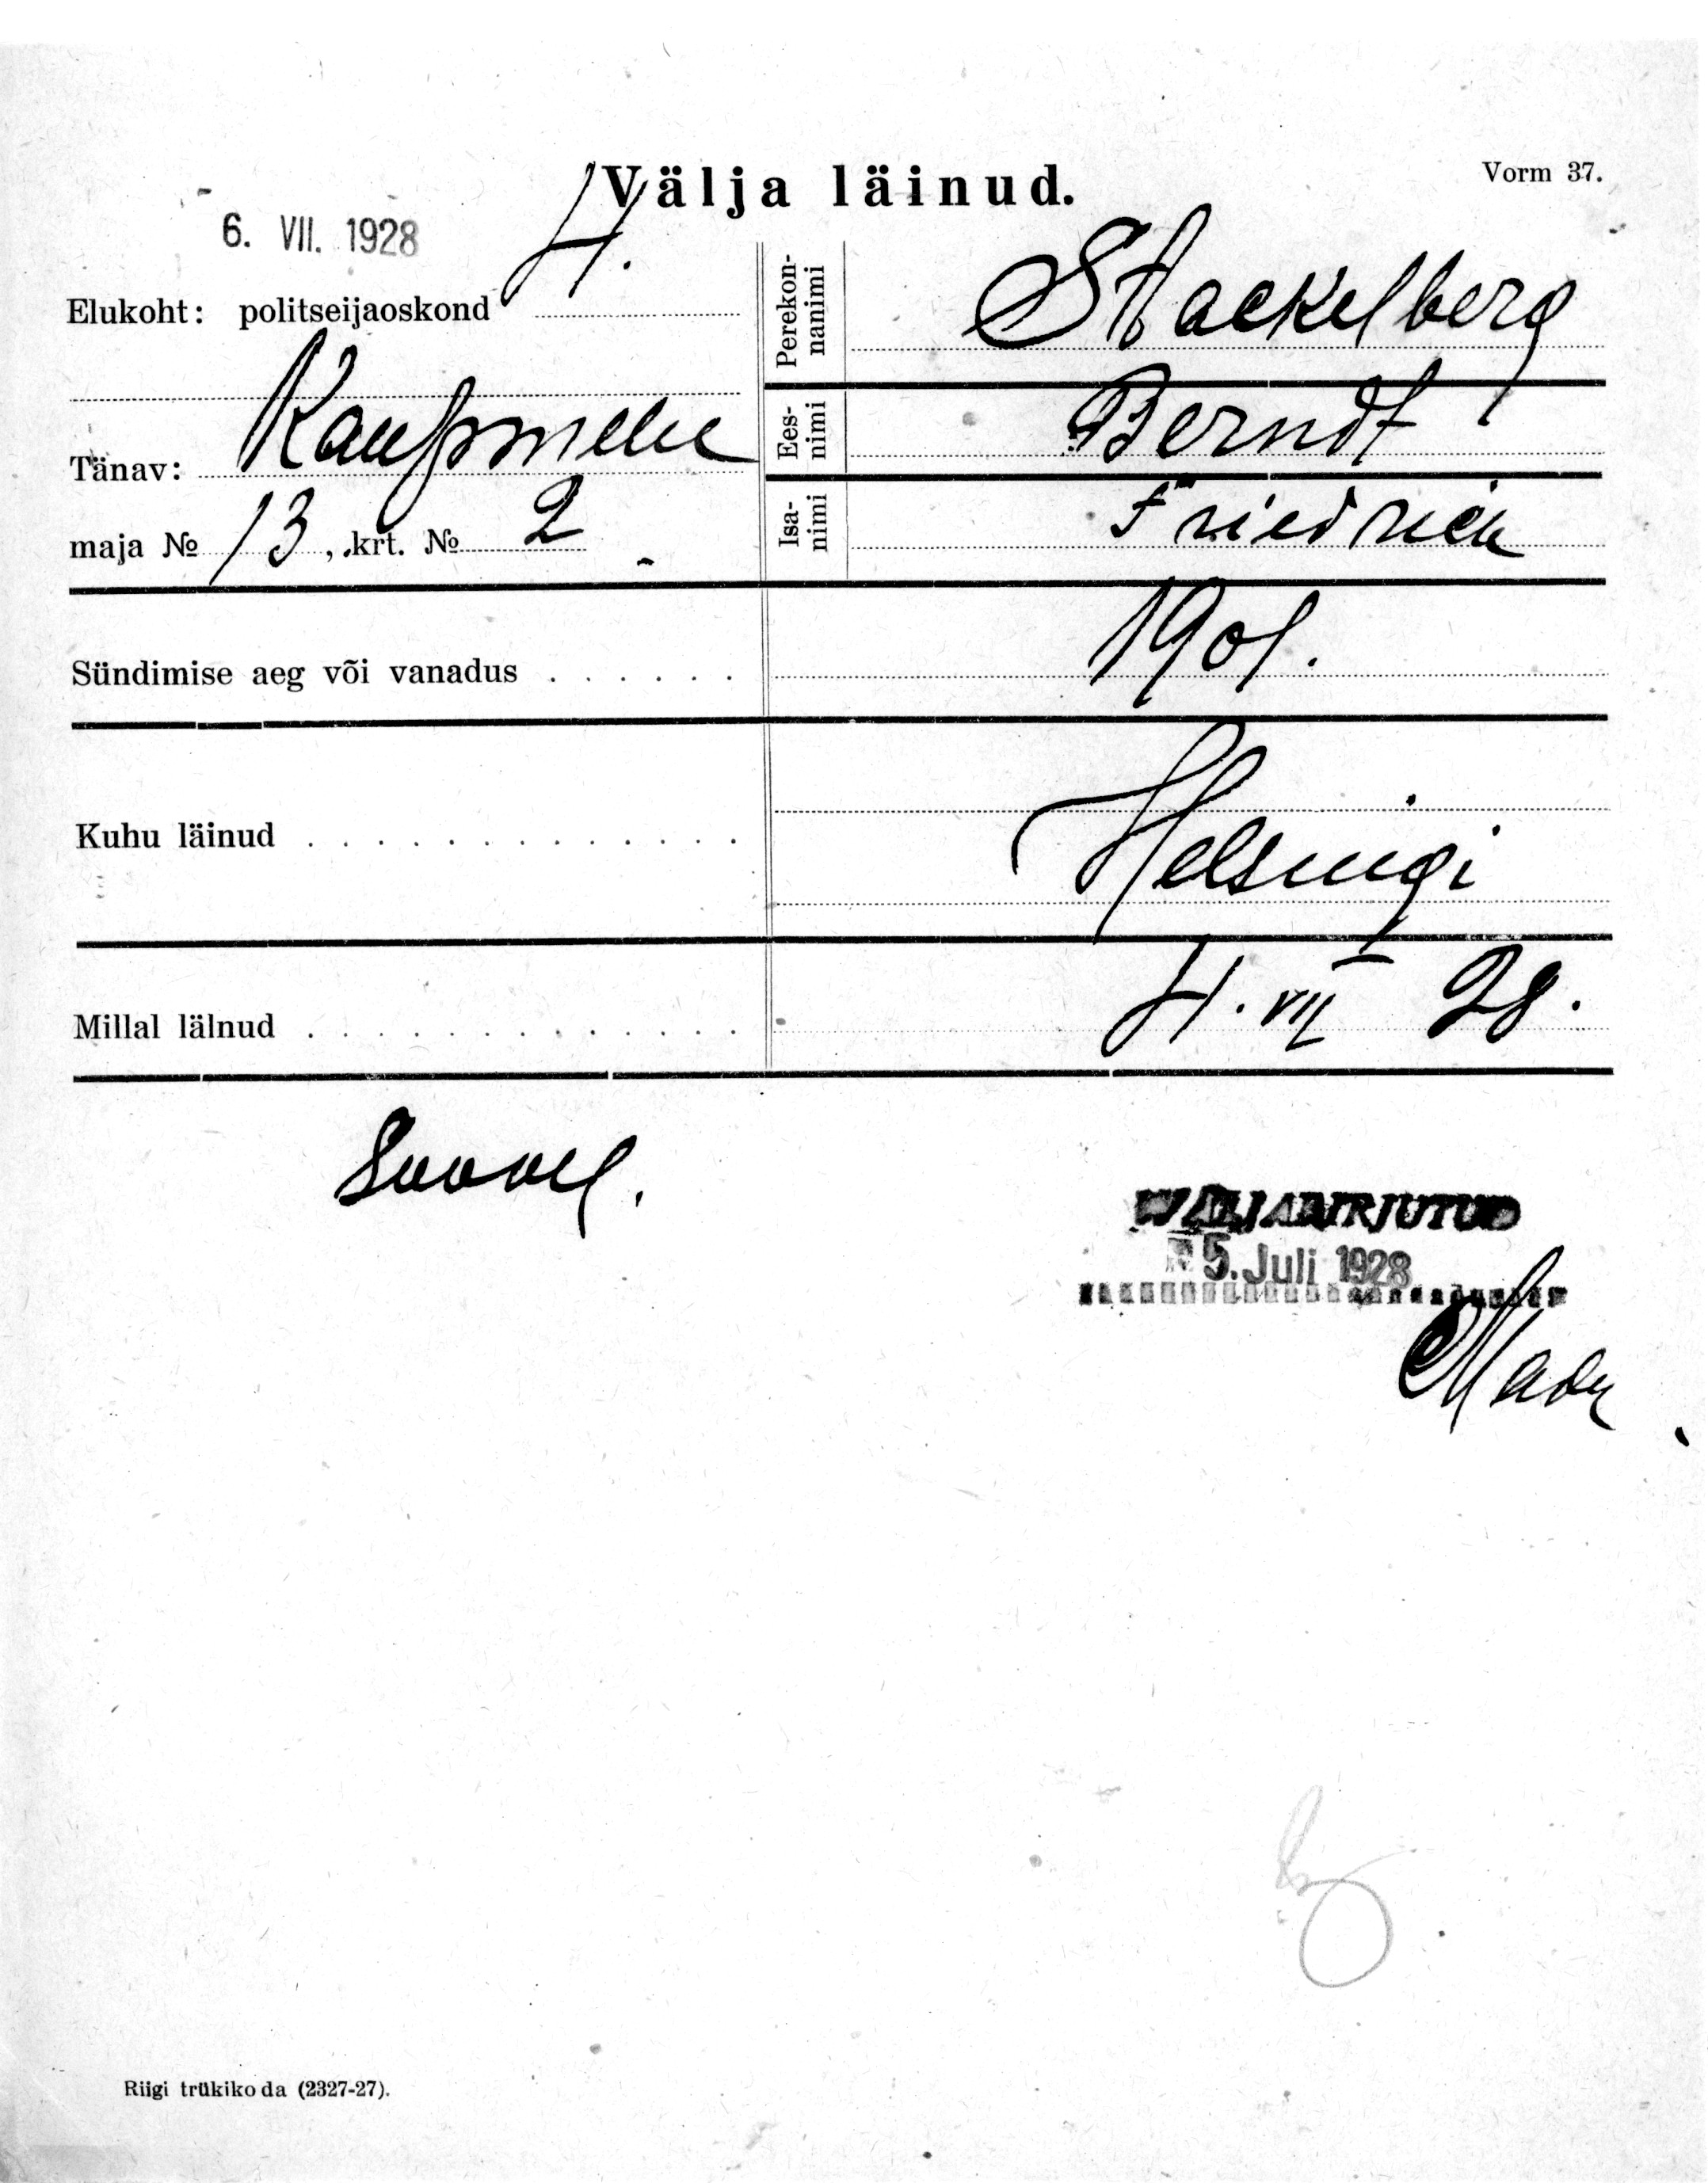 Vorm 37.
Välja läinud.
6. VII. 1928
Elukoht: politseijaoskond 4.
Tänav: Kaupmehe
maja № 13, krt. № 2
Perekon-
nanimi
Stackelberg
Ees-
nimi
Berndt
Isa-
nimi
Friedrich
Sündimise aeg või vanadus . . . . . . 1901.
Kuhu läinud . . . . . . . . . . . . . Helsingi
Millal läinud . . . . . . . . . . . . . 4. VII 28.
WÄLJAKIRJUTUD
5. Juli 1928
Riigi trükikoda (2327-27).